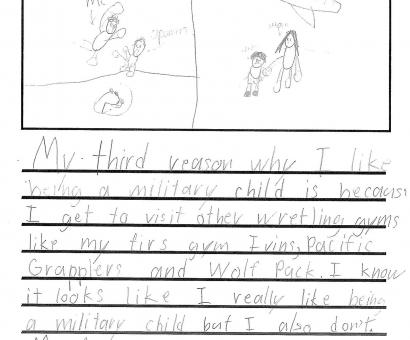 Me
My third reason why I like
being a military child is because
I get to visit other wretling gyms
like my firs gym Ivins, Pacific
Grapplers and Wolf Pack. I know
it looks like I really like being
a military child but I also don't.